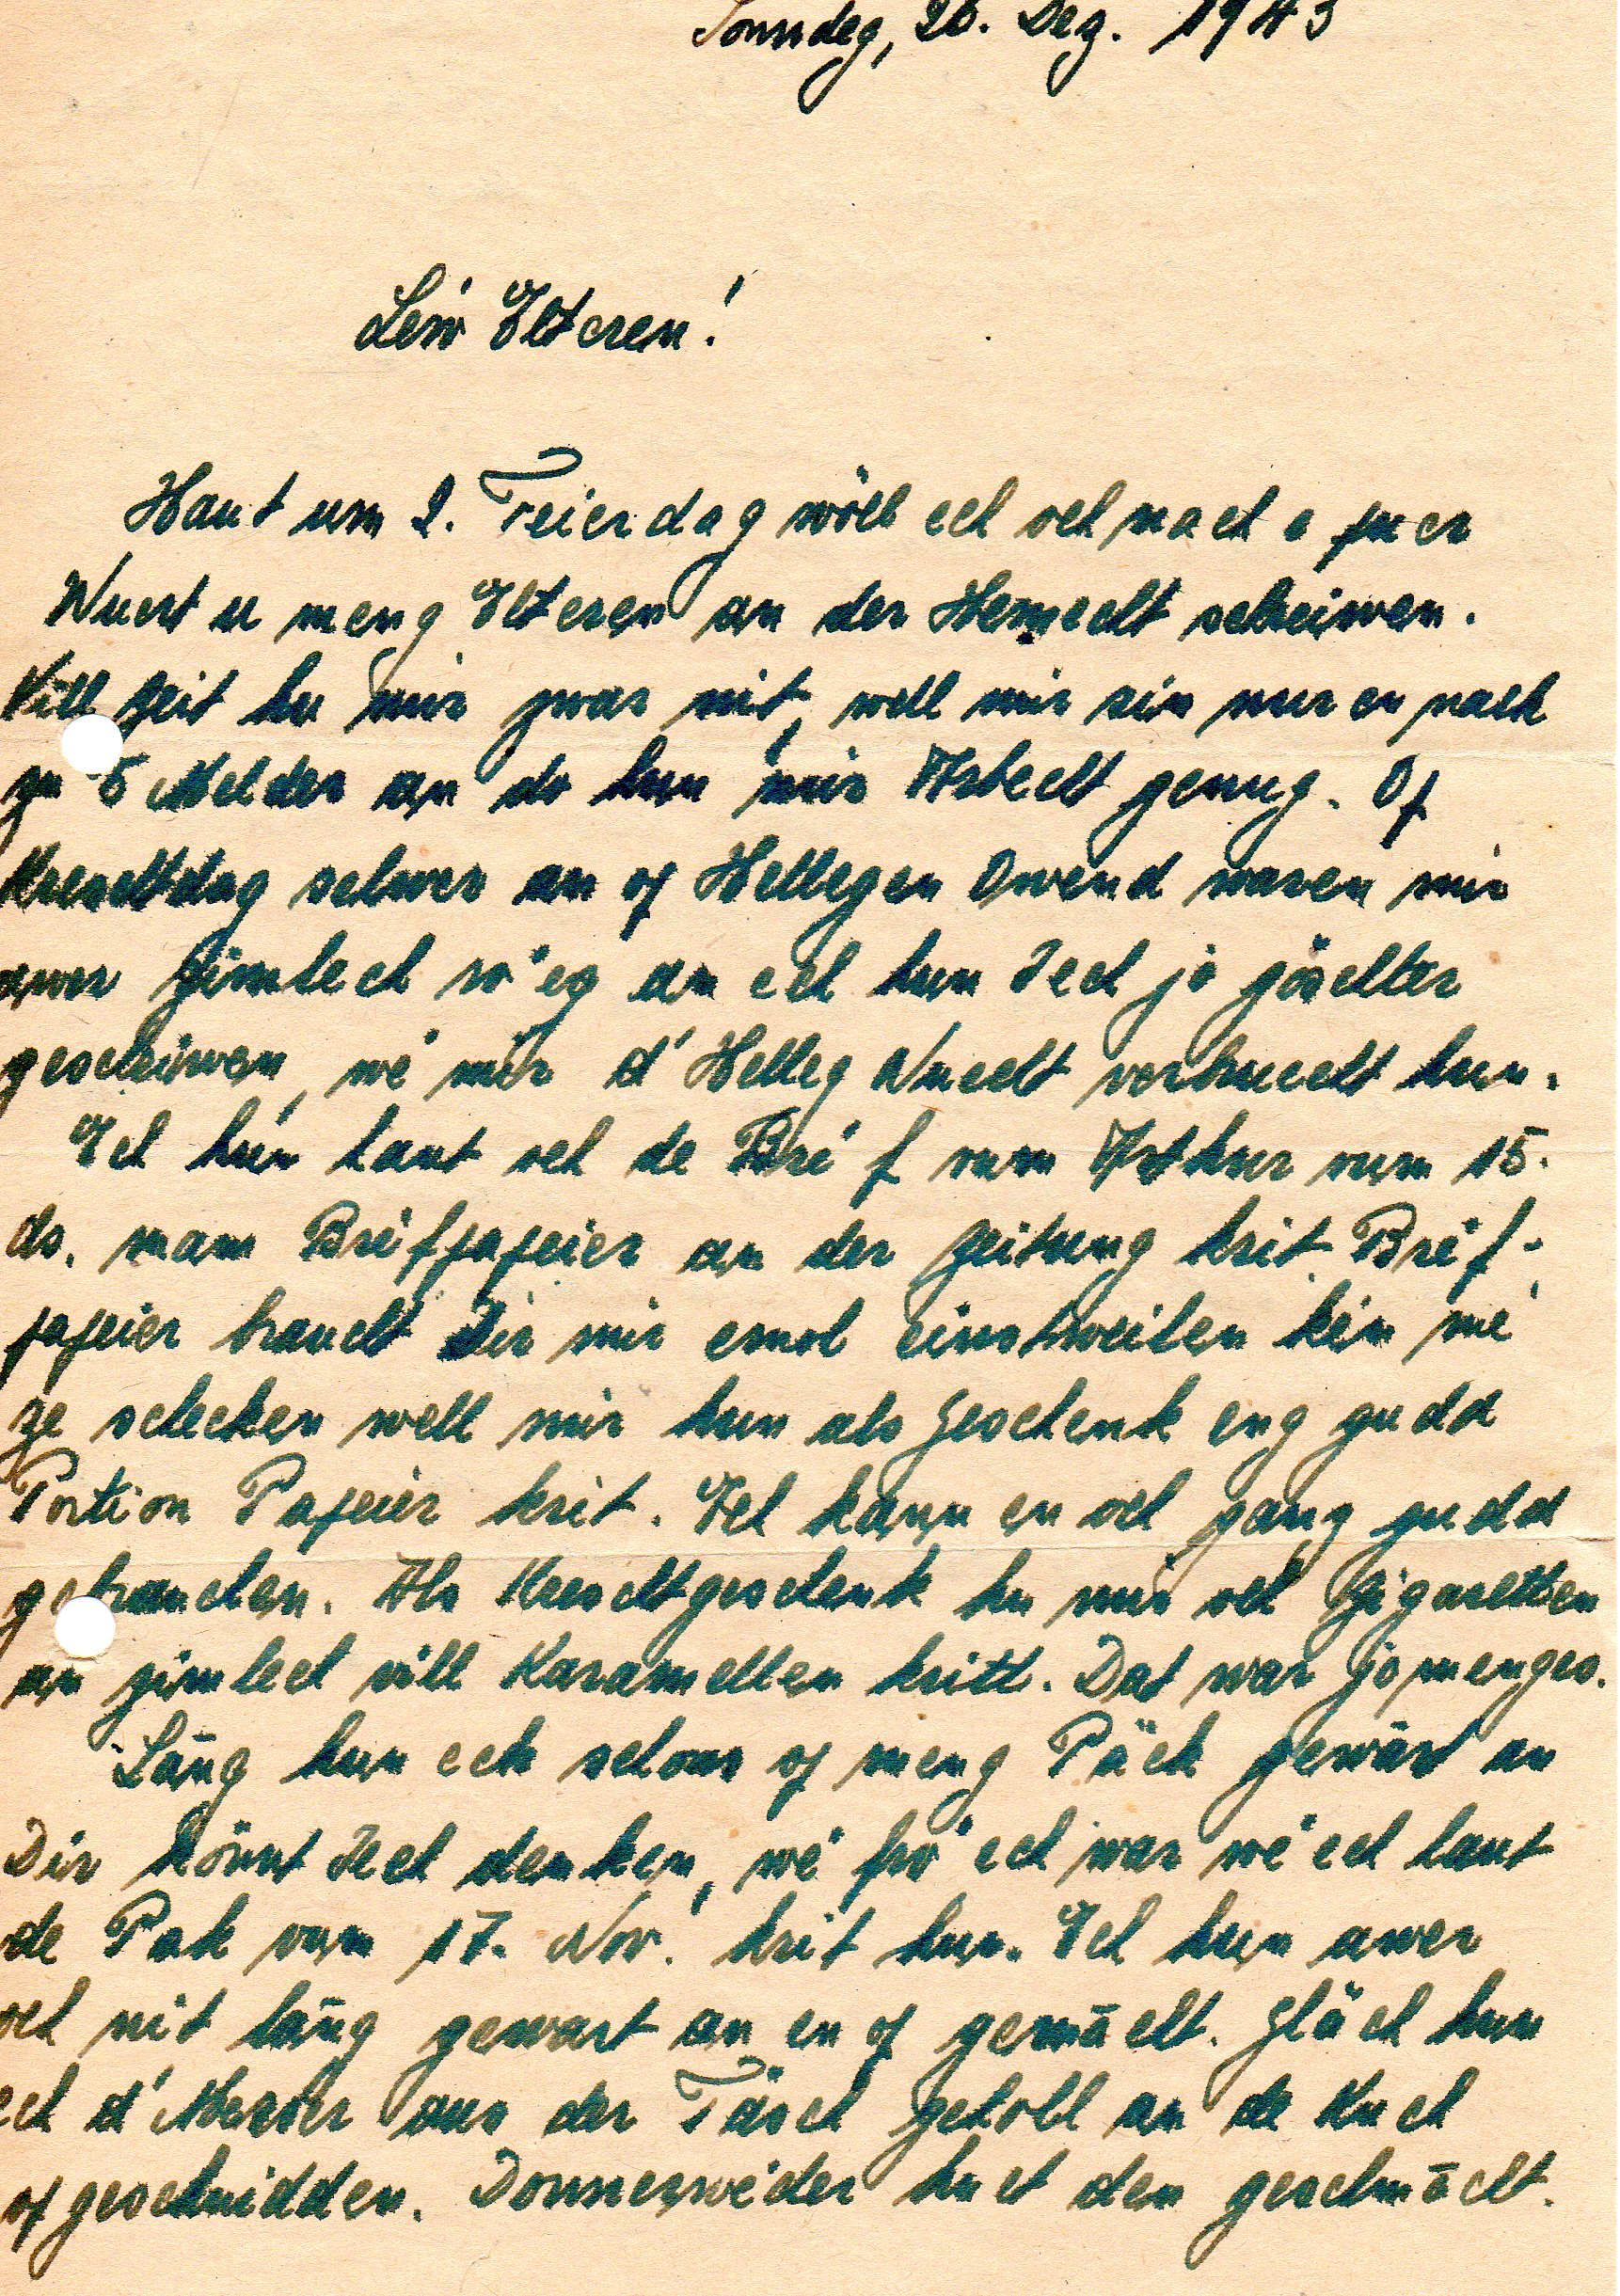 Sonndeg, 26. Dez. 1943
Léw Elteren!
Haut um 2. Feierdag wöll ech och nach e puer
Wuert u meng Elteren an der Hemecht schreiwen.
Vill Zeit hu mir zwar nit, well mir sin nur er nach
zu 5 Melder an do hun mir Arbecht genug. Of
Kreschtdag selwer an of Hellegen Owend waren mir
awer zimlech rö'eg an ech hun Iech jo gäschter
geschriwen, wé mir d'Helleg Nuecht verbruecht hun.
Ech hun haut och de Bréf vum Arthur vum 15.
ds. mam Bréfpapeier an der Zeitung krit. Bréf-
papeier braucht Dir mir emol einstweilen kén mé
ze schecken well mir hun als Geschenk eng gudd
Portion Papeier krit. Ech kann en och ganz gudd
gebrauchen. Als Kreschtgeschenk hu mir och Zigaretten
an zimlech vill Karamellen kritt. Dat war jo menges.
Läng hun ech schons of meng Päck gewärt an
Dir könnt Iech denken, wé fro' ech war wé ech haut
de Pak vum 17. Nov. krit hun. Ech hun awer
och nit läng gewart an en of gemächt. Gläch hun
ech d'Messer aus der Täsch geholl an de Kuch
ofgeschnidden. Donnerwéder huet den geschmächt.